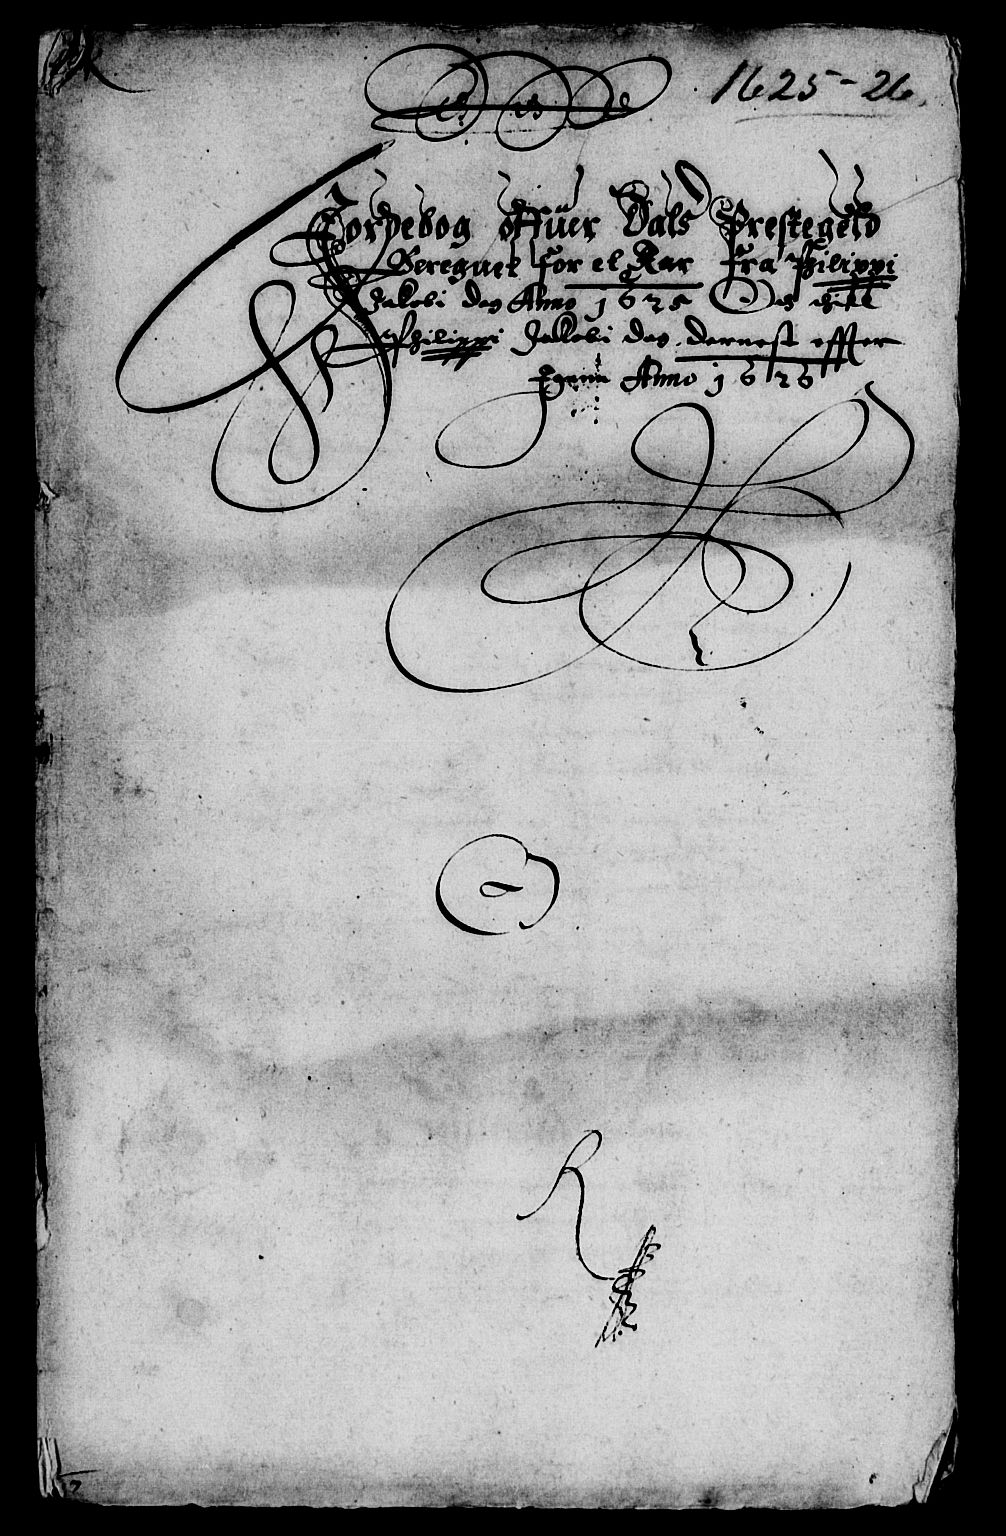 1625-26.
Jordebog offuer Dals Prestegeld
Beregnet for et Aar Fra Philippi
Jakobi dag Anno 1625 Och till
Philippi Jakobi dag dernest effter
Anno 1626